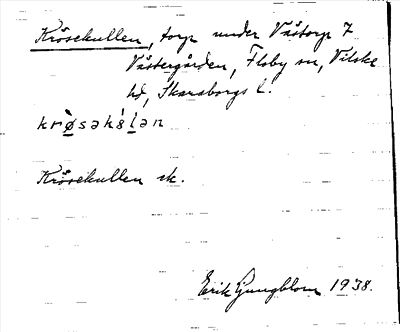 Krösekullen, torp under Västorp 7
Västergården, Floby sn, Vilske
hd, Skaraborgs l.
krø̀sək8́lən
Krösekullen sk.
Erik Ljungblom 1938.